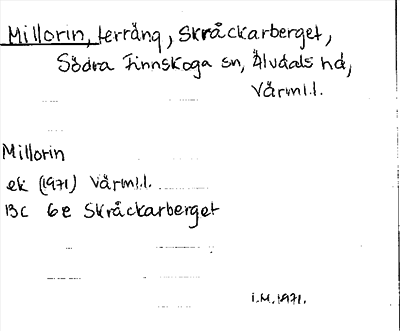 Millorin, terräng, Skråckarberget,
Södra Finnskoga sn, Älvdals hd,
Värml.l.
Millorin
ek (1971) Värml.l.
13C 6e Skråckarberget
i.M.1971.